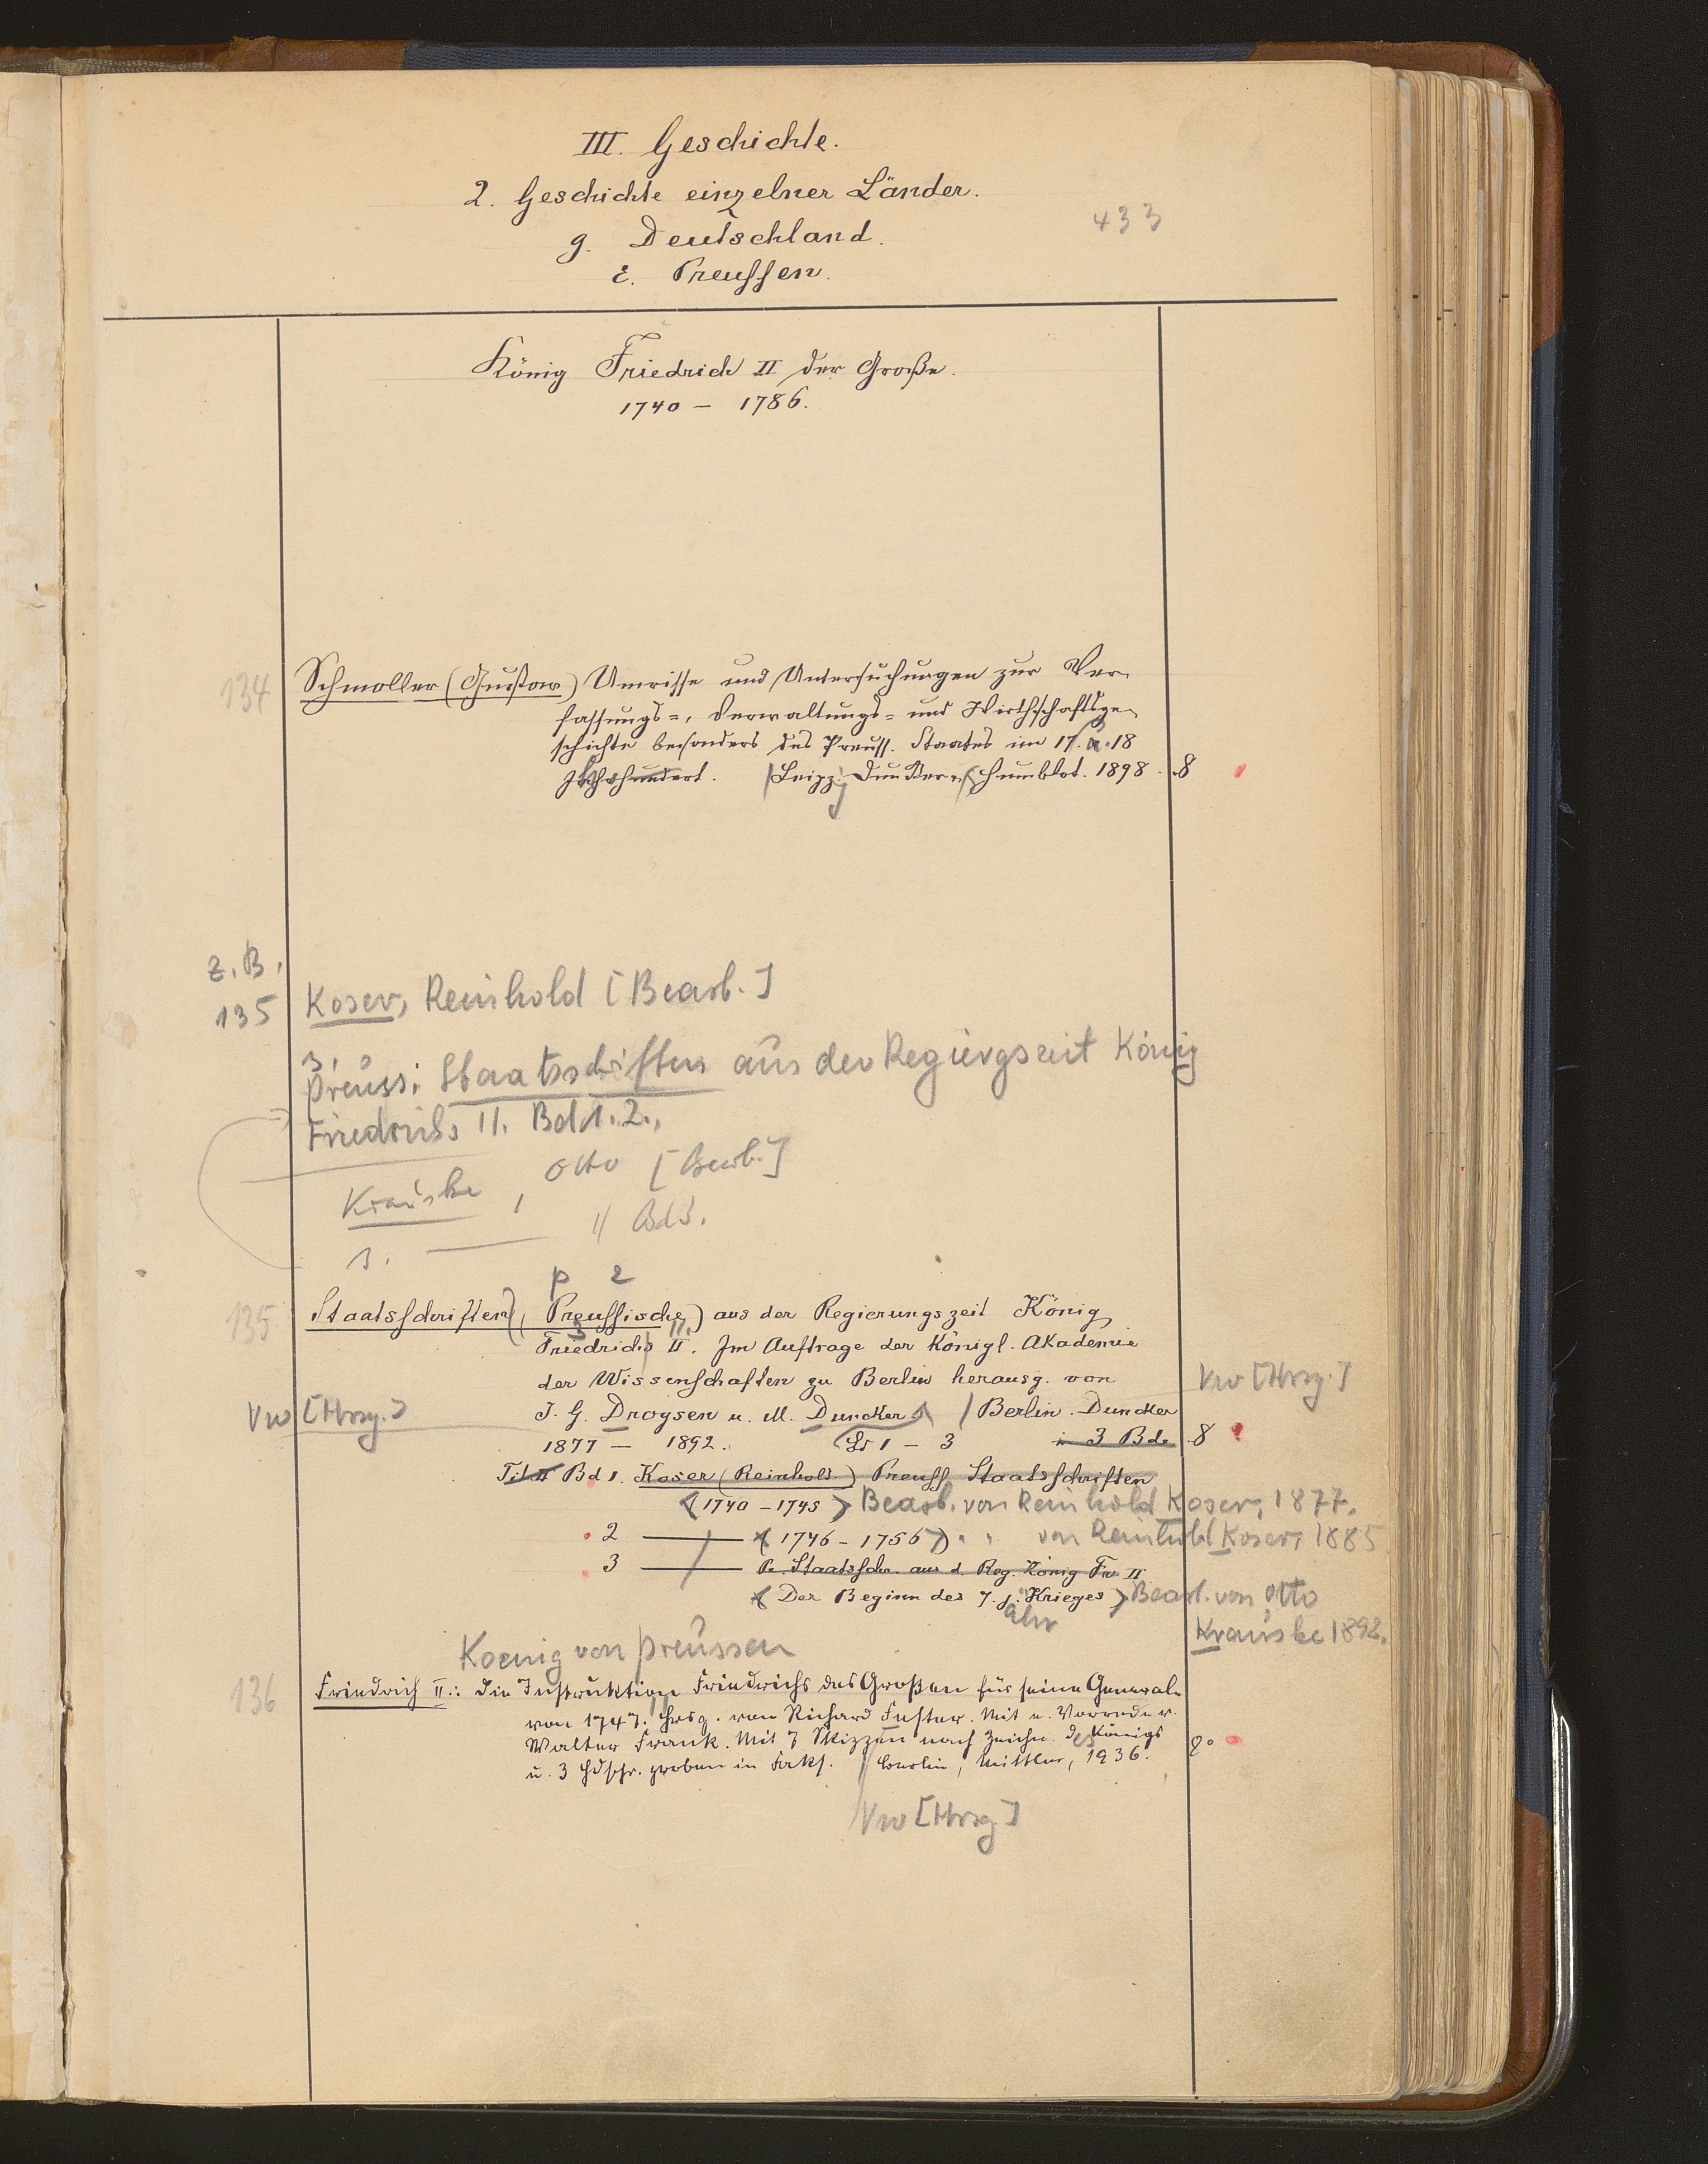 III. Geschichte.
2. Geschichte einzelner Länder.
433
g. Deutschland.
ε. Preussen.
König Friedrich II der Große.
1740 – 1786.
134 Schmoller (Gustav) Umrisse und Untersuchungen zur Ver-
fassungs-, Verwaltungs- und Wirthschaftsge-
schichte besonders des Preuss. Staates im 17. u. 18
Jahrhundert. Leipz. Duncker u. Humblot. 1898. 8
z. B.
135 Koser, Reinhold [Bearb.]
Preuss. Staatsschriften aus der Regierungszeit König
Friedrichs II. Bd 1. 2.,
Krauske, Otto [Bearb.]
s. — // Bd 3.
p 2
135 Staatsschriften, (Preussische) aus der Regierungszeit König
3 II.
Friedrichs II. Im Auftrage der Königl. Akademie
der Wissenschaften zu Berlin herausg. von
Vw [Hrsg.]
Vw [Hrsg.] J. G. Droysen u. M. Duncker / Berlin. Duncker
1877 – 1892. Bd 1 – 3 in 3 Bde 8
Bd 1. Koser (Reinhold) Preuss. Staatsschriften
<1740 – 1745> Bearb. von Reinhold Koser, 1877.
2 — <1746 – 1756> " " von Reinhold Koser, 1885
3 — Pr. Staatsschr. aus d. Reg. König Fr. II
<Der Beginn des 7. j. Krieges> Bearb. von Otto
ähr
Krauske 1892.
Koenig von Preussen
136 Friedrich II.: Die Instruktion Friedrichs des Großen für seine Generale
von 1747. Hrsg. von Richard Fester. Mit e. Vorrede v.
Walter Frank. Mit 7 Skizzen nach Zeichn. des Königs
u. 3 Hdschr. proben in Faks. // Berlin, Mittler, 1936. 8°
Vw [Hrsg]